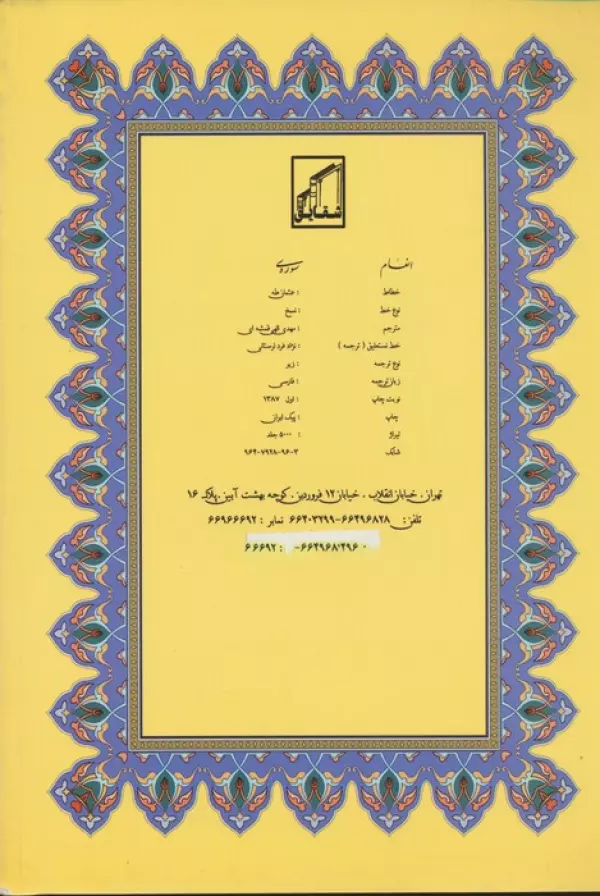 شقایق
سوره‌ی انعام
خطاط : عثمان طه
نوع خط : نسخ
مترجم : مهدی الهی قمشه ای
خط نستعلیق ( ترجمه ) : نژاد فرد لرستانی
نوع ترجمه : زیر
زبان ترجمه : فارسی
نوبت چاپ : اول ۱۳۸۷
چاپ : پیک ایران
تیراژ : ۵۰۰۰ جلد
شابک : ۹۶۴-۷۹۲۸-۹۶-۳
تهران ، خیابان انقلاب ، خیابان ۱۲ فروردین ، کوچه بهشت آیین ، پلاک ۱۶
تلفن : ۶۶۴۹۶۸۲۸-۶۶۴۰۳۷۹۹ نمابر : ۶۶۹۶۶۶۹۲